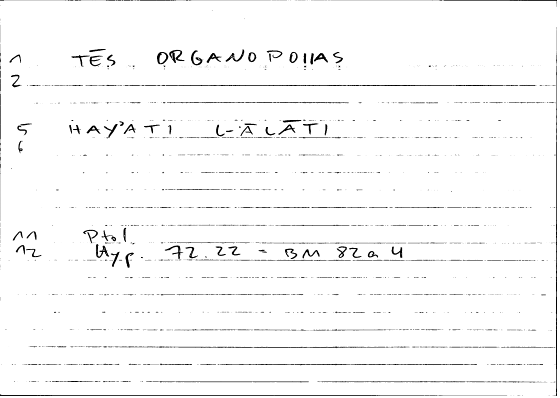 1 TĒS ORGANOPOIIAS
2
5 HAY'ATI L-ĀLĀTI
6
11 Ptol.
12 Hyp. 72.22 - BM 82a4